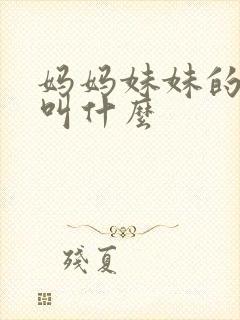 妈妈妹妹的
叫什麼
殘夏